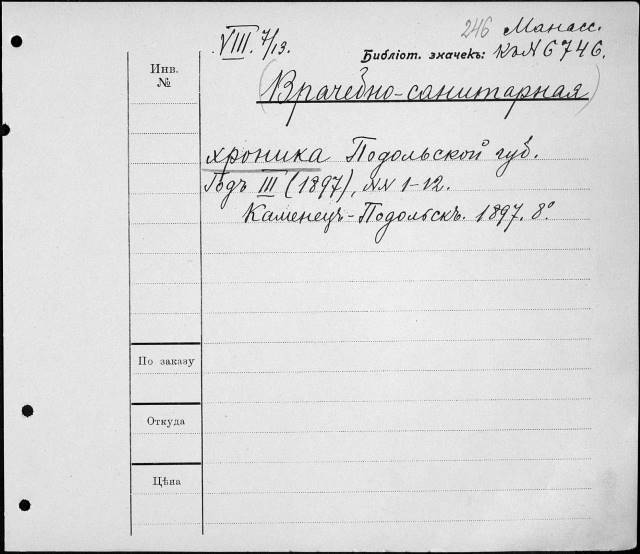 VIII. 7/13.
246 Манасс.
Библіот. значекъ: КъN 6746.
Инв.
№
(Врачебно-санитарная)
хроника Подольской губ.
Годъ III (1897), NN 1-12.
Каменец-Подольскъ. 1897. 8°
По заказу
Откуда
Цѣна